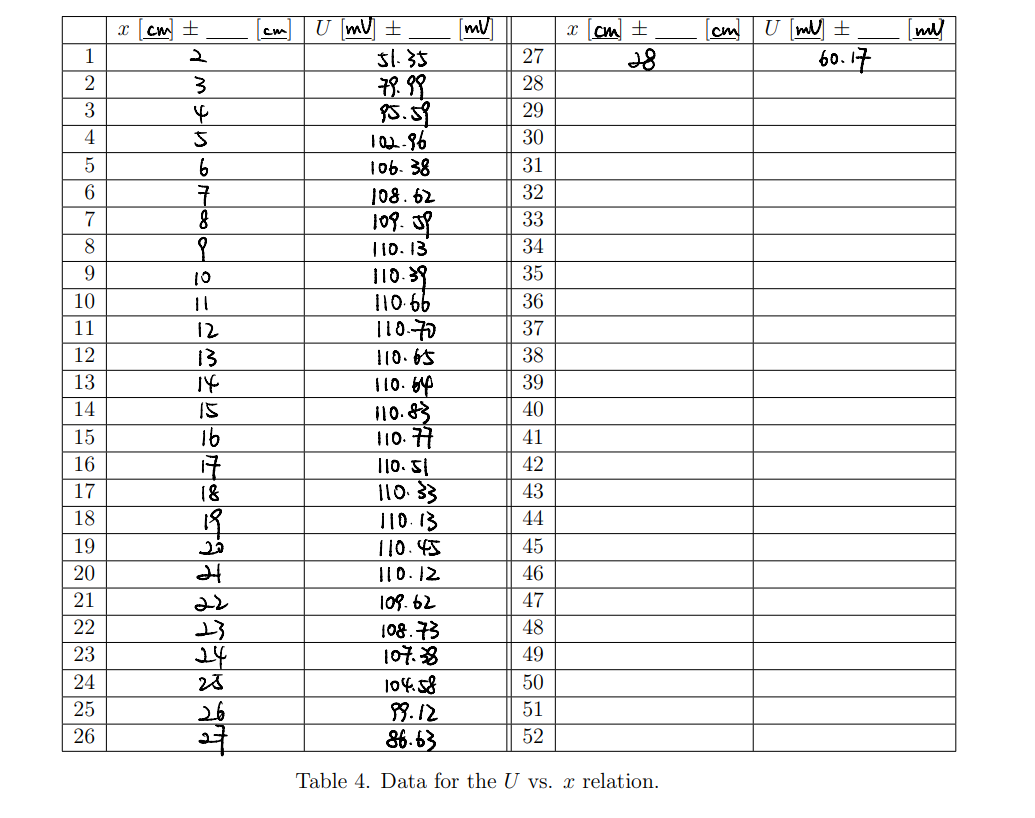 x [cm] ± ___ [cm] U [mV] ± ___ [mV] x [cm] ± ___ [cm] U [mV] ± ___ [mV]
1 2 51.35 27 28 60.17
2 3 79.99 28
3 4 95.59 29
4 5 102.96 30
5 6 106.38 31
6 7 108.62 32
7 8 109.59 33
8 9 110.13 34
9 10 110.39 35
10 11 110.66 36
11 12 110.70 37
12 13 110.65 38
13 14 110.64 39
14 15 110.83 40
15 16 110.77 41
16 17 110.51 42
17 18 110.33 43
18 19 110.13 44
19 20 110.45 45
20 21 110.12 46
21 22 109.62 47
22 23 108.73 48
23 24 107.38 49
24 25 104.58 50
25 26 99.12 51
26 27 86.63 52
Table 4. Data for the U vs. x relation.